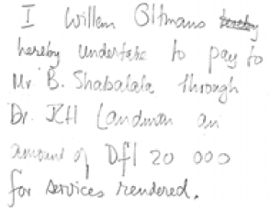 I Willem Oltmans
hereby undertake to pay to
Mr. B. Shabalala through
Dr. KH Landman an
amount of Dfl 20 000
for services rendered.